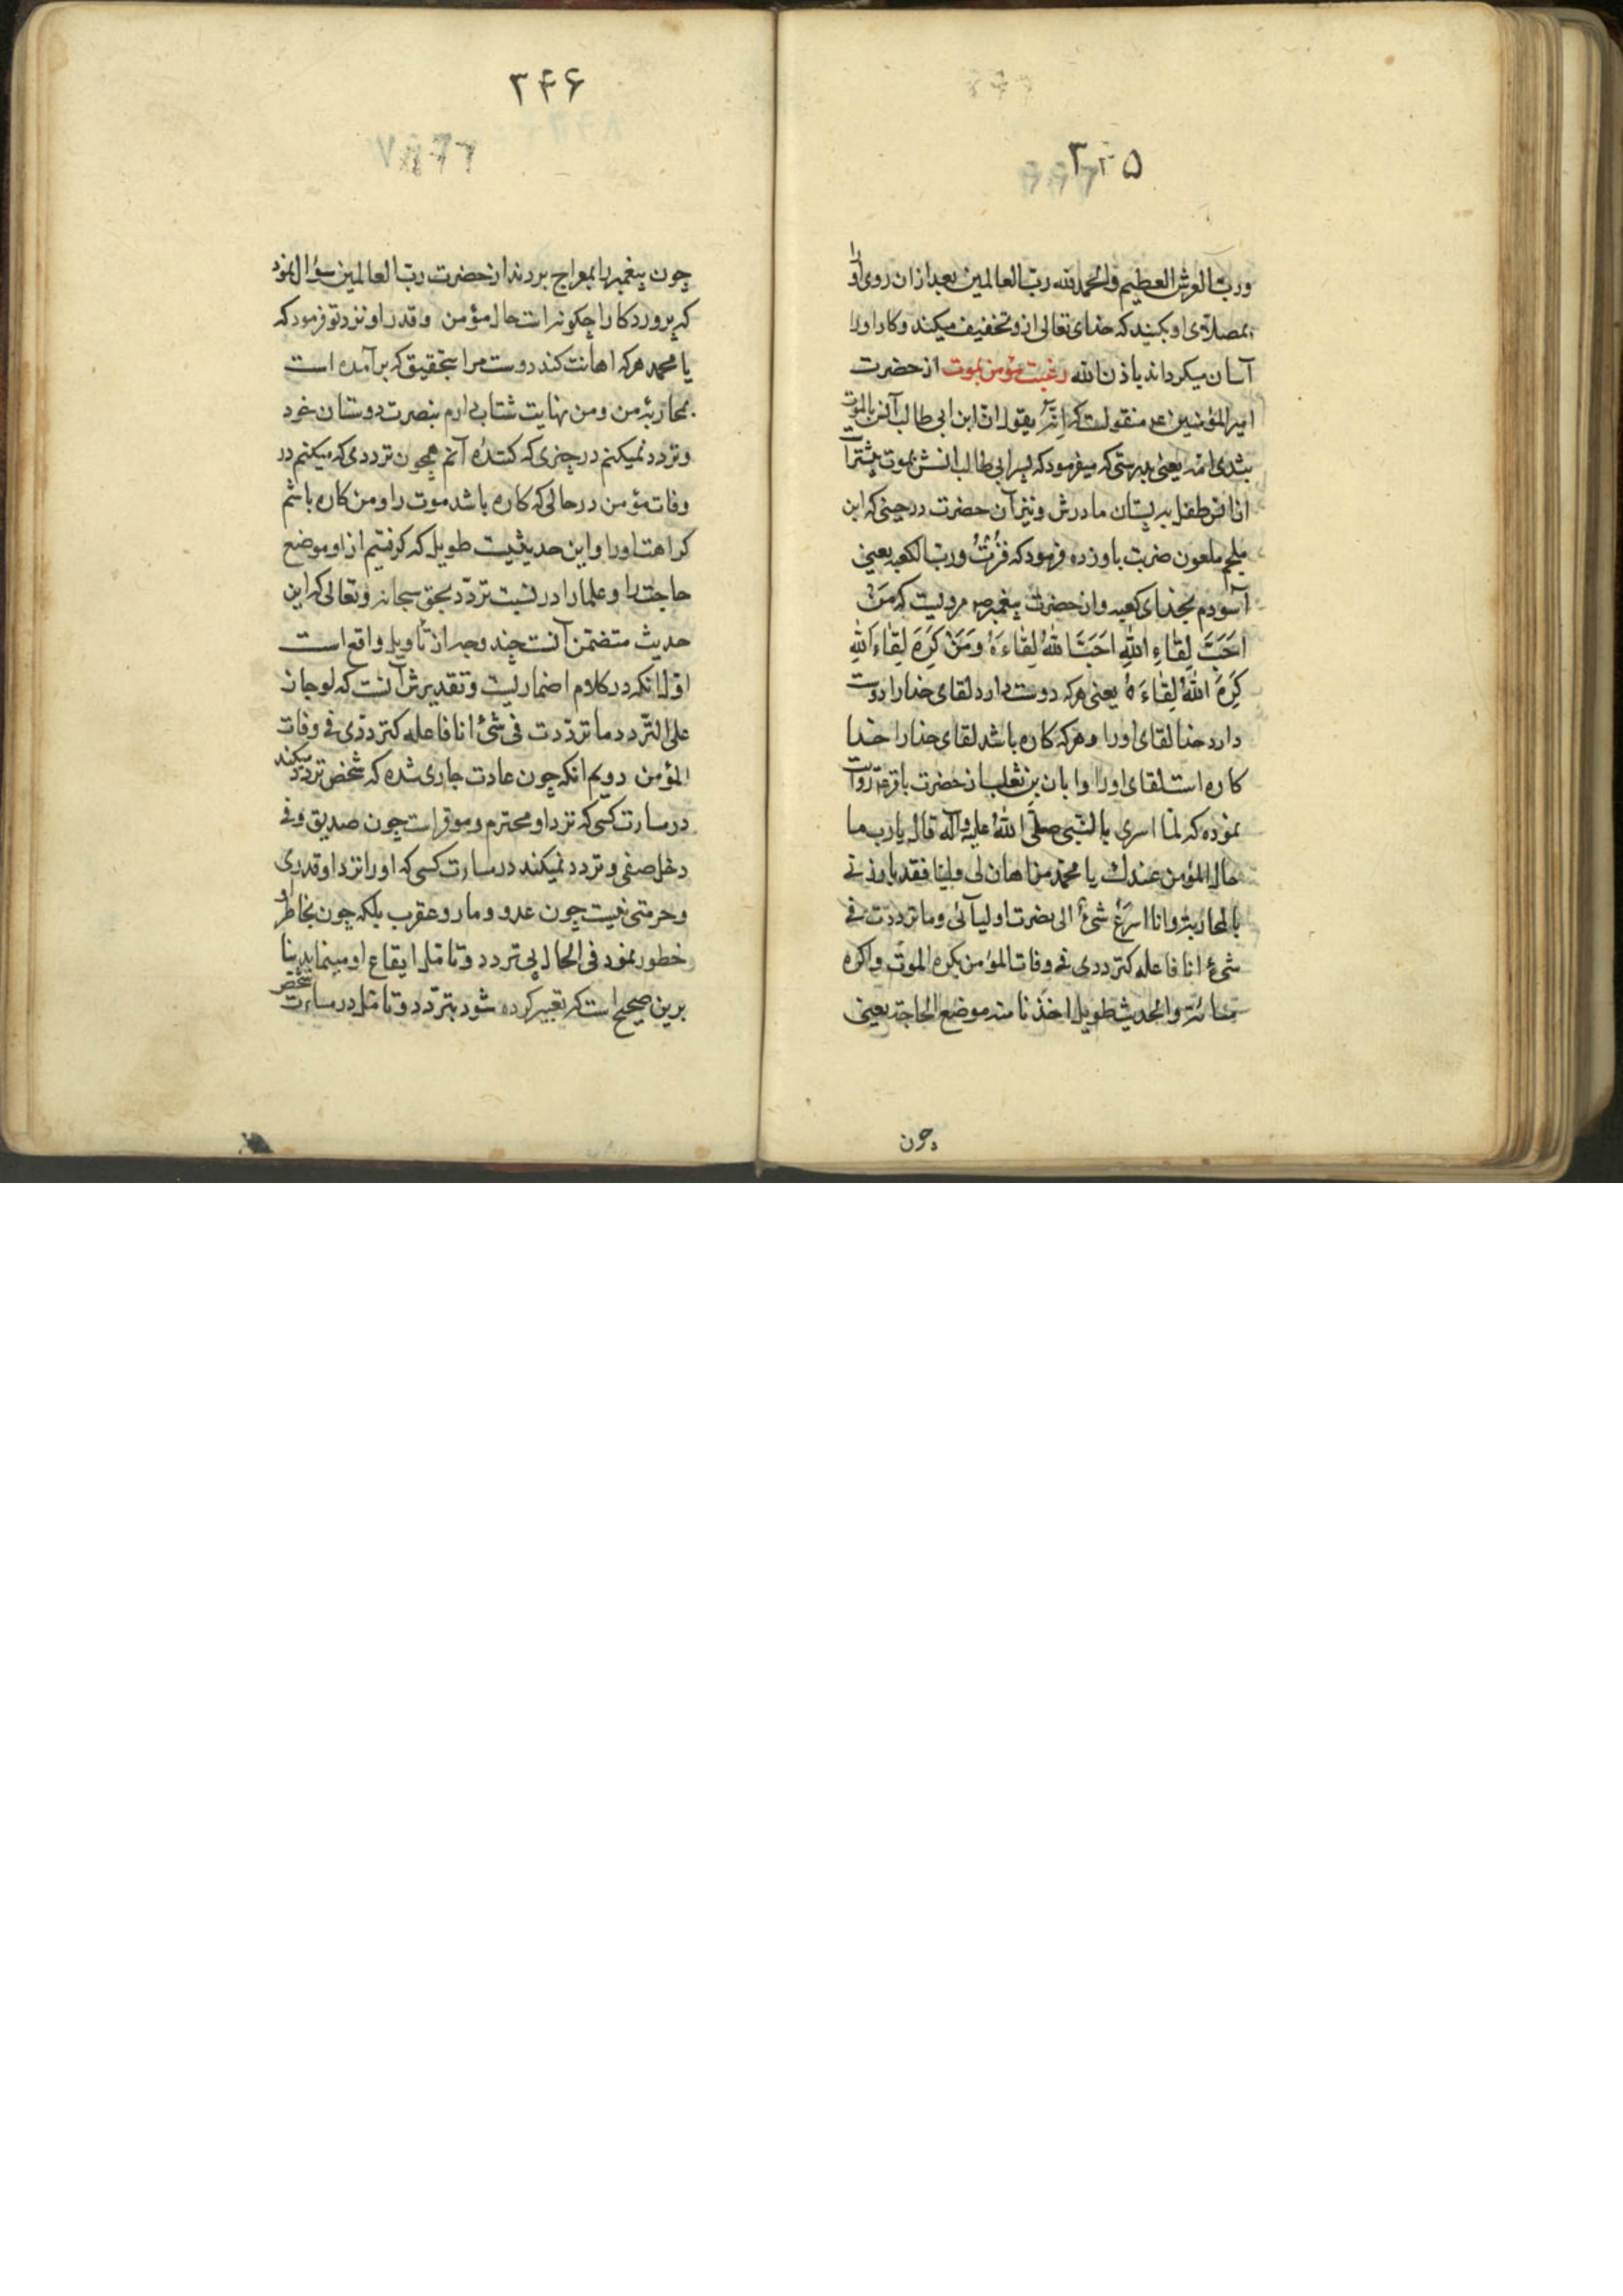 ۳۴۵
ورب العرش العظیم والحمد لله رب العالمین بعد از ان روی او را
بمصلای او بکنید که خدای تعالی ازو تخفیف میکند و کار او را
آسان میکرداند باذن الله رغبت مؤمن بموت از حضرت
امیر المؤمنین ع منقولست که انه یقول ان ابن ابی طالب آنس بالموت
بثدی امه یعنی بدرستی که میفرمود که پسر ابی طالب انسش بموت بیشتر است
از انس طفل به پستان مادرش و نیز آن حضرت در حینی که ابن
ملجم ملعون ضربت باو زده فرمود که فزت ورب الکعبه یعنی
آسودم بخدای کعبه و از حضرت پیغمبر ص مرویست که مَنْ
اَحَبَّ لِقاءِ اللهِ اَحَبَّ اللهُ لِقاءَهُ وَمَنْ کَرِهَ لِقاءَ اللهِ
کَرِهَ اللهُ لِقاءَهُ یعنی هر که دوست دارد لقای خدا را دوست
دارد خدا لقای اورا و هر که کاره باشد لقای خدا را خدا
کاره است لقای اورا و ابان بن تغلب از حضرت باقر ع روایت
نموده که لما اسری بالنبی صلی الله علیه وآله قال یا رب ما
حال المؤمن عندك یا محمد من اهان لی ولیا فقد بارزنی
بالمحاربة وانا اسرع شئ الی نصرت اولیآئی وما ترددت فی
شئ انا فاعله کترددی فی وفات المؤمن یکره الموت واکره
مسائته والحدیث طویل اخذنا منه موضع الحاجة یعنی
چون
۳۴۶
چون پیغمبر را بمعراج بردند از حضرت رب العالمین سؤال نمود
که پروردکارا چکونه است حال مؤمن و قدر او نزد تو فرمود که
یا محمد هر که اهانت کند دوست مرا بتحقیق که برآمده است
بمحاربهٔ من و من نهایت شتاب دارم بنصرت دوستان خود
و تردد نمیکنم در چیزی که کننده آنم همچون ترددی که میکنم در
وفات مؤمن در حالی که کاره باشد موت را و من کاره باشم
کراهت اورا و این حدیثیست طویل که کرفتیم از او موضع
حاجت را و علما را در نسبت تردّد بحق سبحانه و تعالی که این
حدیث متضمن آنست چند وجه از تأویل واقع است
اول انکه در کلام اضماریست و تقدیرش آنست که لو جاز
علی التردد ما ترددت فی شئ انا فاعله کترددی فی وفات
المؤمن دویم انکه چون عادت جاری شده که شخص تردد میکند
در مسارت کسی که نزد او محترم و موقر است چون صدیق وفی
و خل صفی و تردد نمیکند در مسارت کسی که او را نزد او قدری
و حرمتی نیست چون عدو و مار و عقرب بلکه چون بخاطر او
خطور نمود فی الحال بی تردد و تامل ایقاع او مینماید بنا
برین صحیح است که تعبیر کرده شود بتردّد و تامل در مساءت شخص